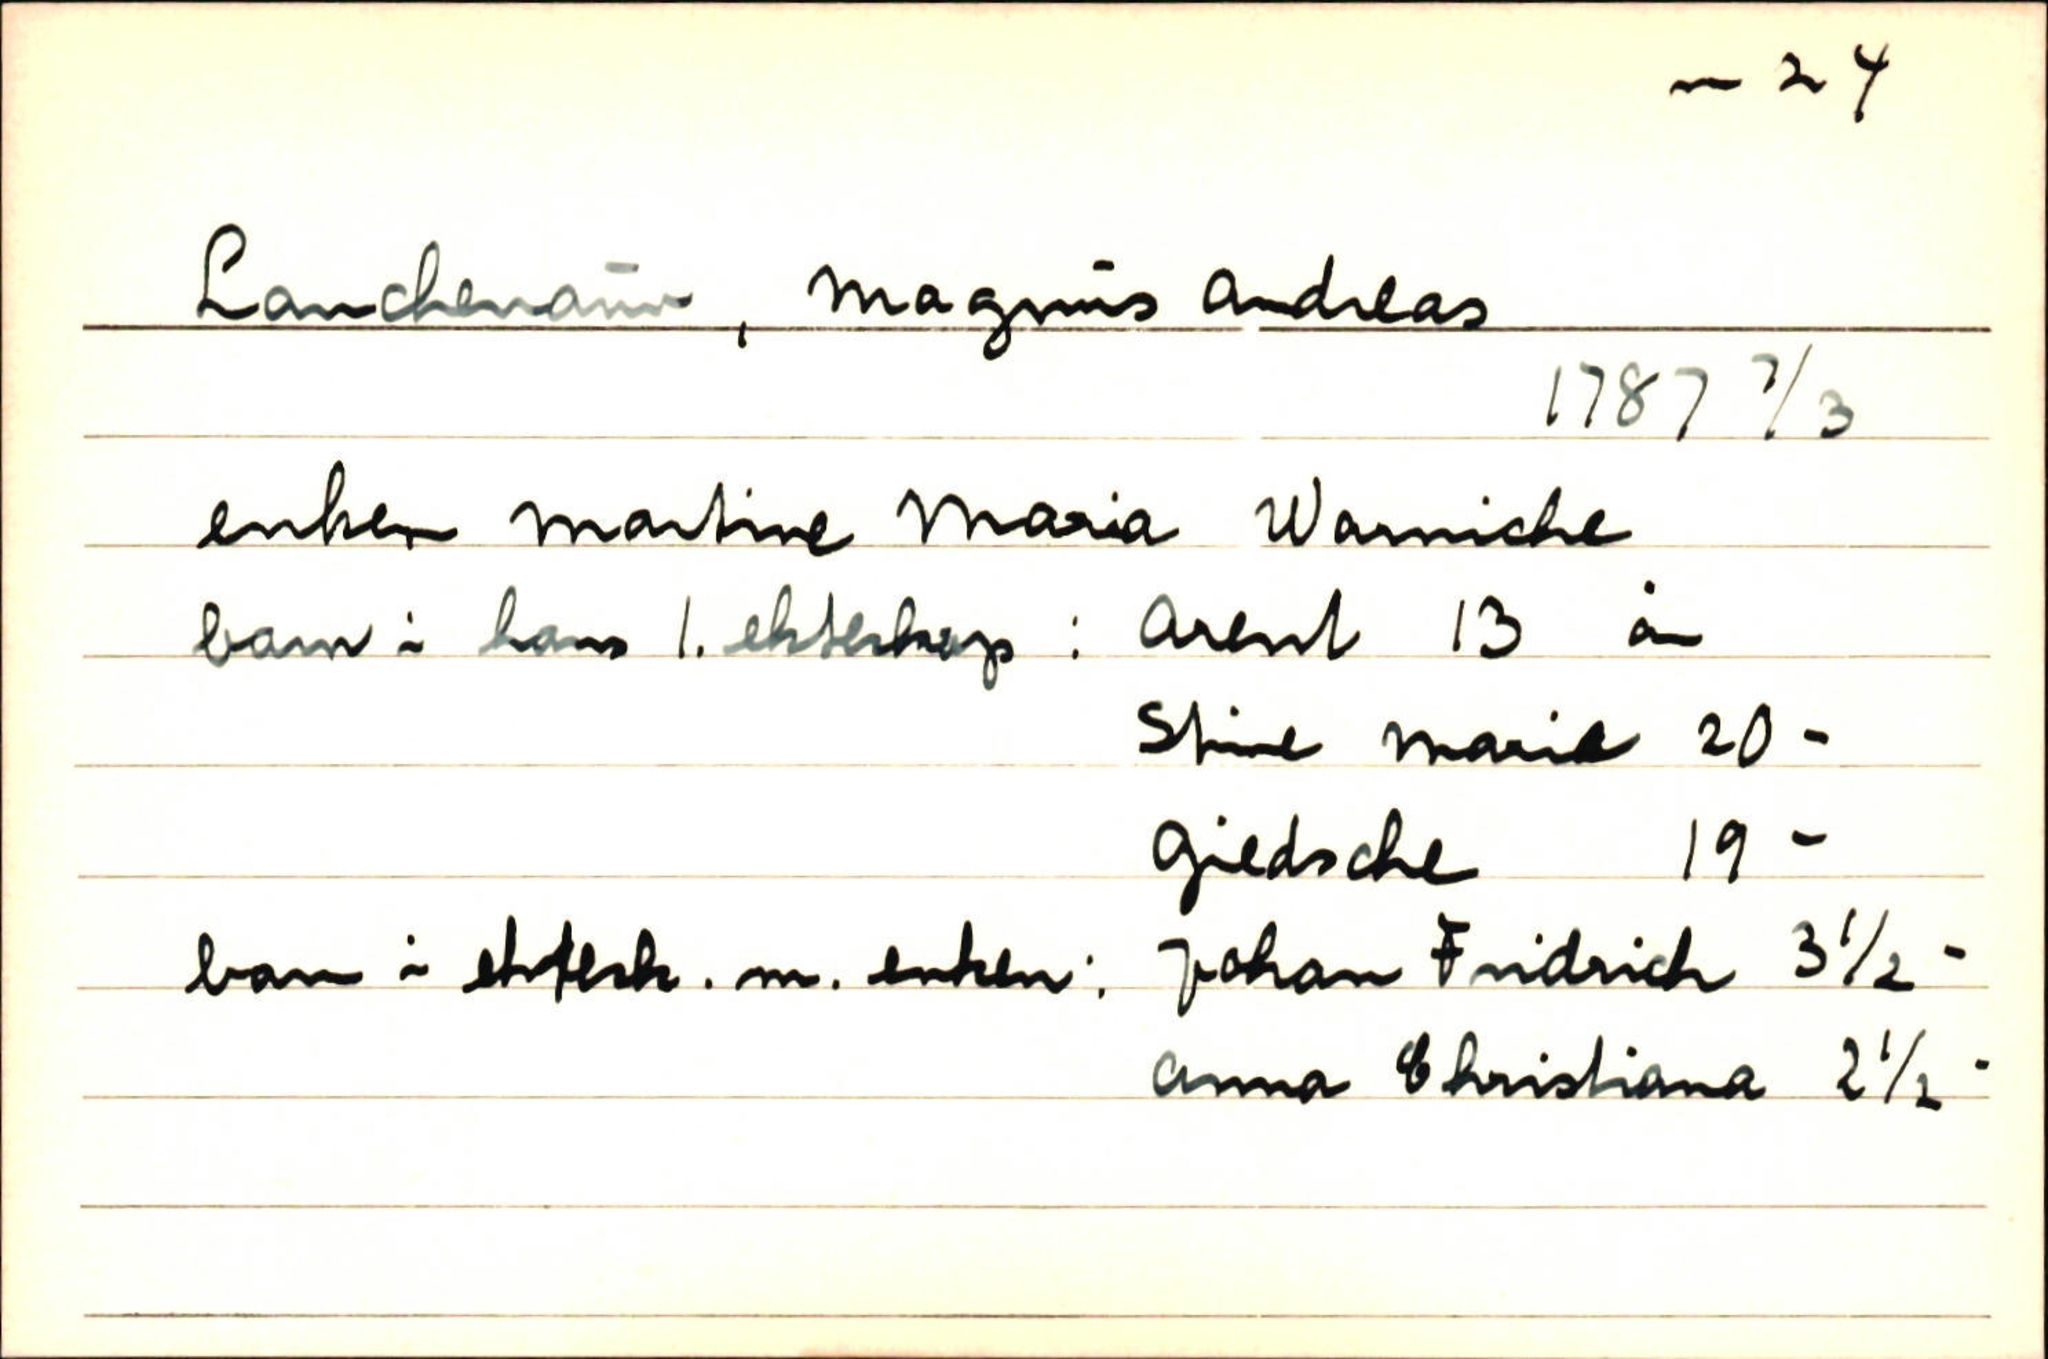 ~ 24
Lanchenaūv, Magnūs Andreas
1787 7/3
enken Martine Maria Warniche
barn i hans 1. ekteskap: Arent 13 år
Stine Marie 20 -
Giedsche 19 -
barn i ektesk. m. enken: Johan Fridrich 3 1/2 -
Anna Christiana 2 1/2 -